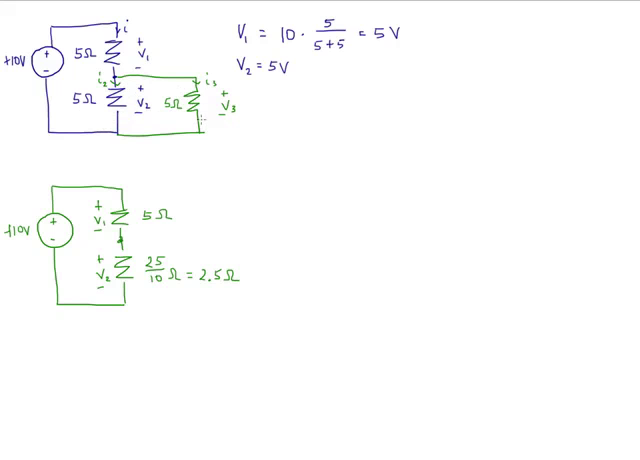 +10V
+
-
5Ω
i
+
V₁
-
i₂
5Ω
+
V₂
-
5Ω
i₃
+
V₃
-
V₁ = 10 · 5/(5+5) = 5 V
V₂ = 5V
+10V
+
-
+
V₁
-
5Ω
+
V₂
-
25/10 Ω = 2.5Ω